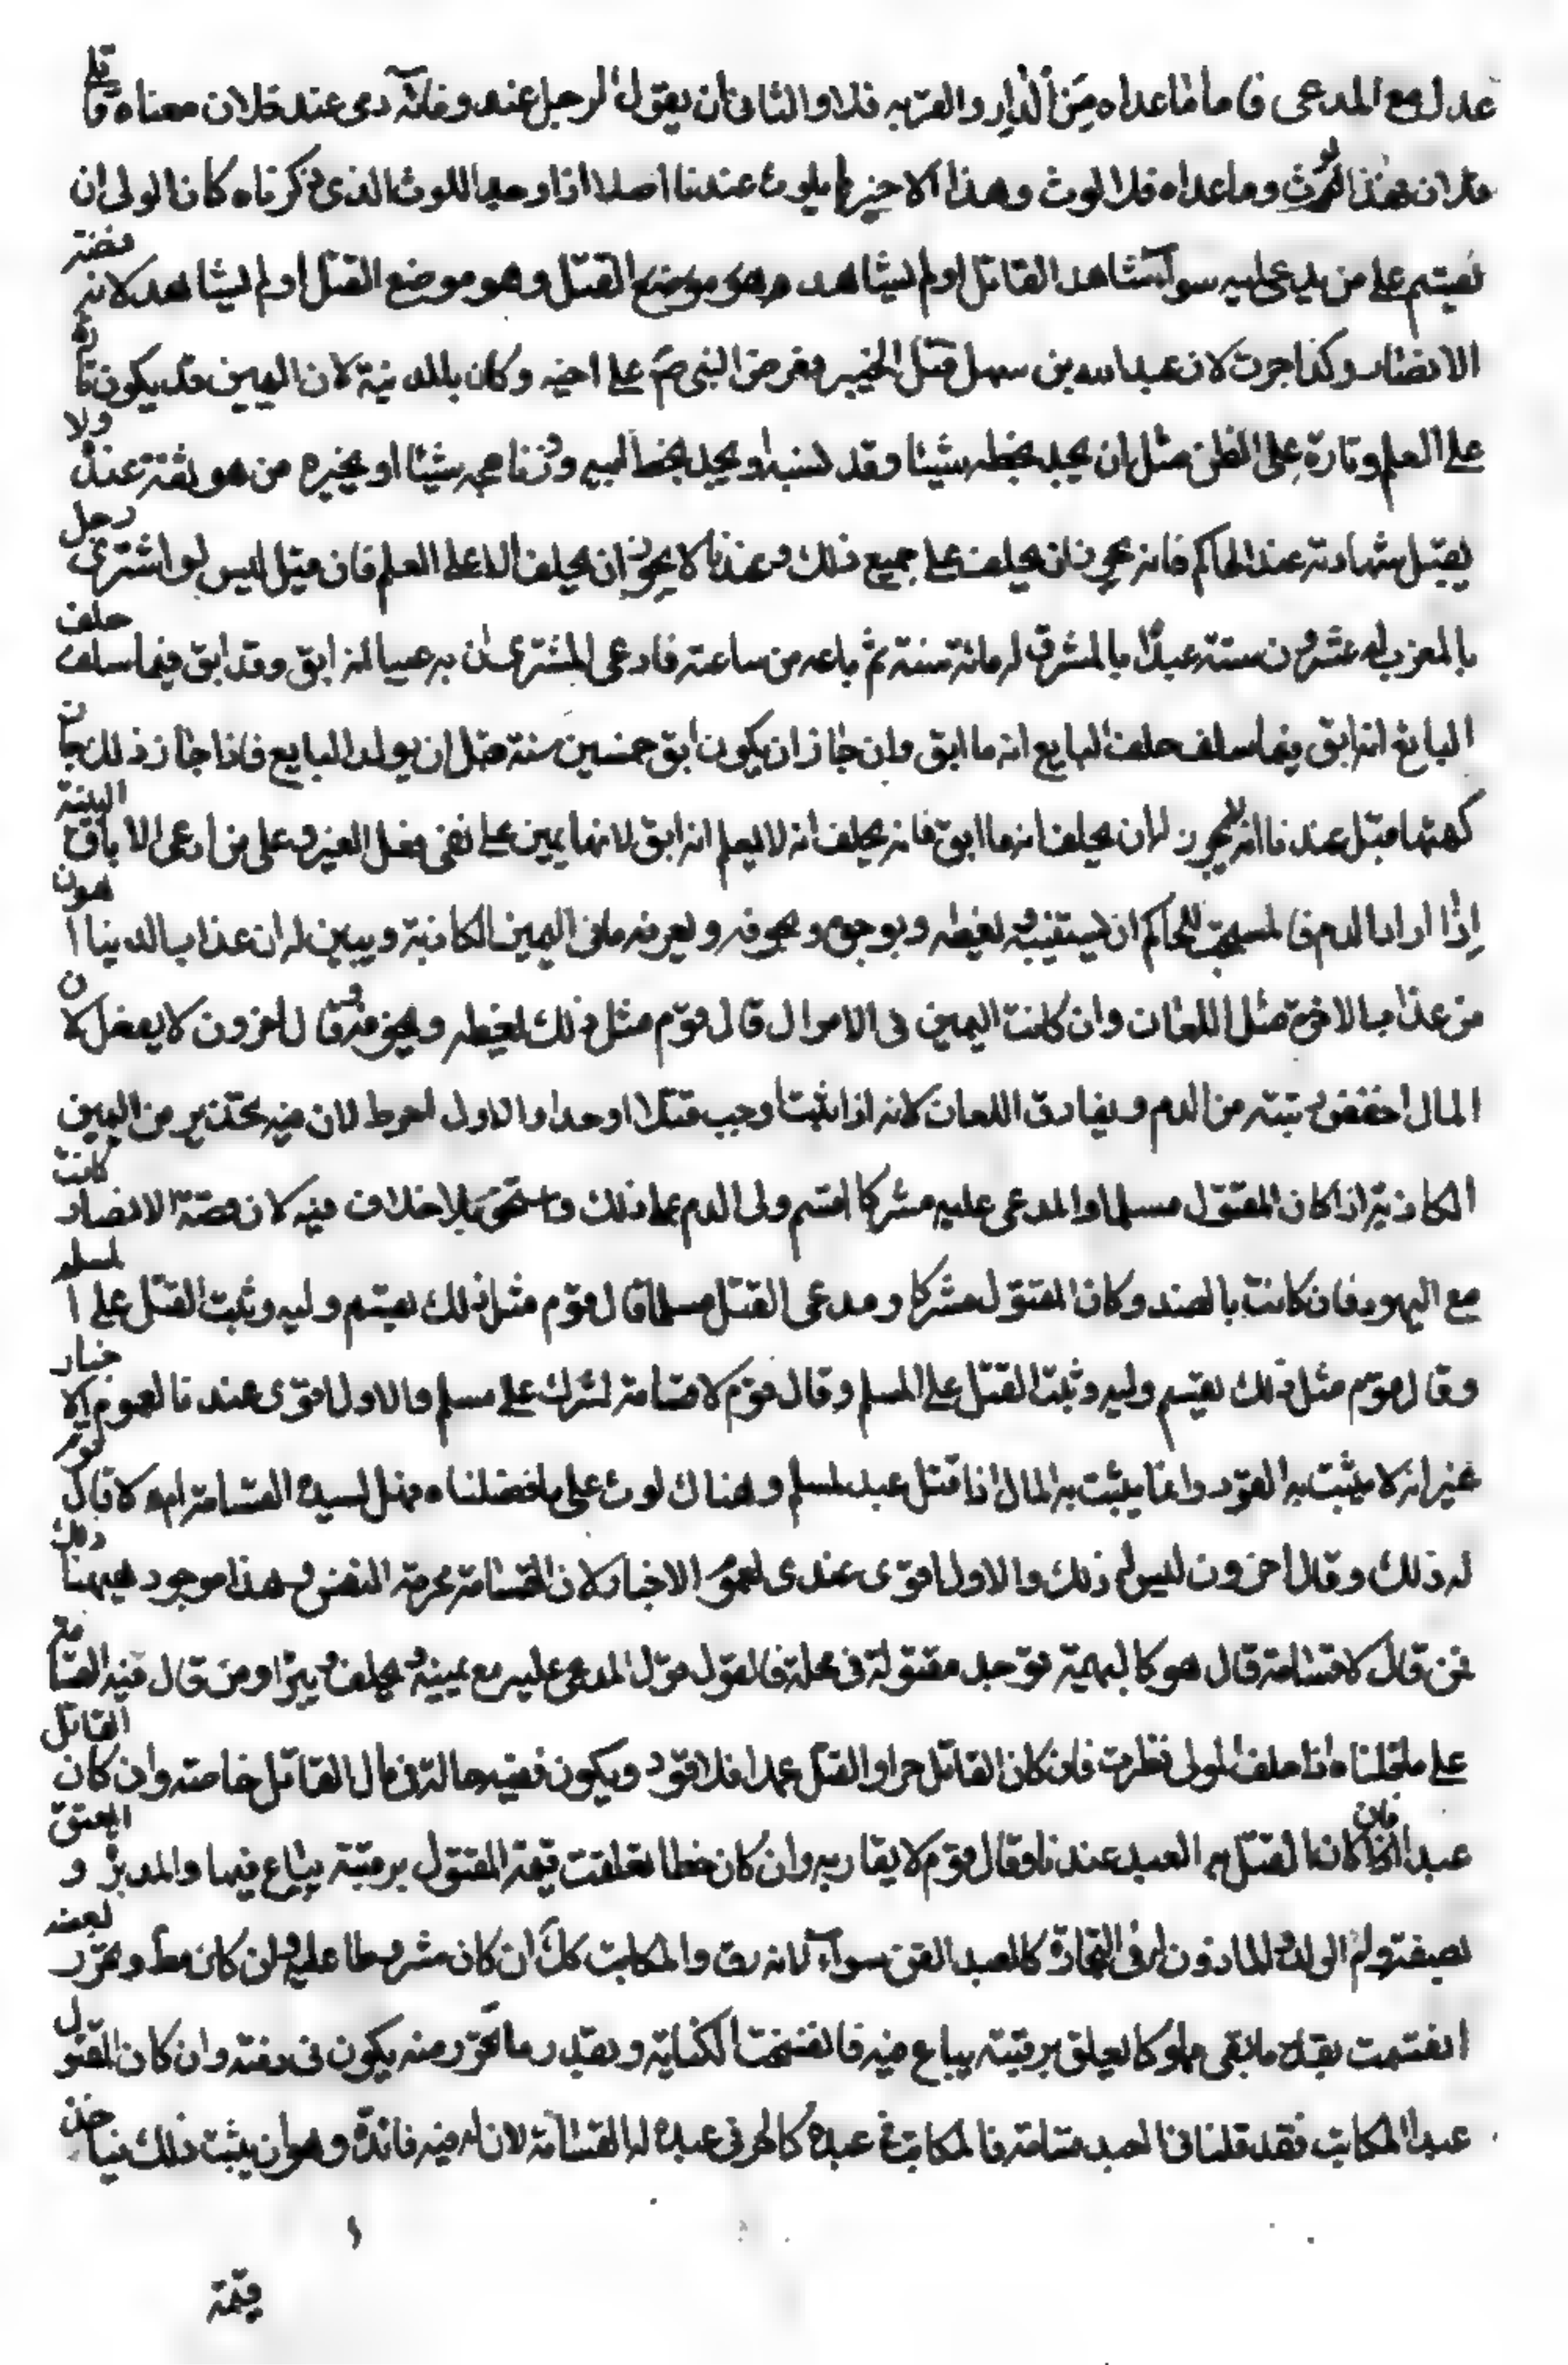 عدل مع المدعي فاما ما عداه من الدار والقربه فلا والثاني ان يقول الرجل عند وفاته دمي عند فلان معناه قاتلي
فلان فهذا لوث وما عداه فلا لوث وهذا الاخير ما بلوث عندنا اصلا اذا وجد اللوث الذي ذكرناه كان الولي ان
يقسم على من يدعى عليه سواء شاهد القاتل او لم يشاهد وهو موضع القتل وهو موضع القتل او لم يشاهد لان قصة
الانصار وكذا جرت لان عبد الله بن سهل قتل الخيبر وفعرض النبي صم على اخيه وكان بالمدينة لان اليمين قد يكون تارة
على العلم وتارة على الظن مثل ان يجد بخطه شيئا وقد نسيه او يجد بخط ابيه وزنامجه شيئا او يخبره من هو ثقة عنده ولا
يقبل شهادته عند الحاكم فانه يجوز ان يحلف على جميع ذلك وعندنا لا يجوز ان يحلف الا على العلم فان قيل اليس لو اشترى رجل
بالمغرب له عشرون سنة عبدا بالمشرق له مائة سنة ثم باعه من ساعته فادعى المشتري ان به عيبا انه ابق وقد ابق فيما سلف حلف
البايع انه ابق فيما سلف حلف البايع انه ما ابق وان جاز ان يكون ابق خمسين سنة قبل ان يولد البايع فاذا جاز ذلك جان
كهتها قيل عندنا انه لا يجوز له ان يحلف انه ما ابق فانه يحلف انه لا يعلم انه ابق لانها يمين على نفي فعل الغير وعلى من ادعى الاباق البينة
اذا اراد الدم في لمسيحب للحاكم ان يستثيبه لغيظه وبوجوه ويخوفه ويعرفه ما في اليمين الكاذبة ويبين له ان عذاب الدنيا اهون
من عذاب الاخرة مثل اللعان وان كانت اليمين في الاموال قال قوم مثل ذلك يغيظه ويخوفه وقال اخرون لا يفعل لان
المال اخفض رتبته من الدم ويفارق اللعان لانه اذا ثبت اوجب قتلا او حدا والاول احوط لان فيه تحذير من اليمين
الكاذبة اذا كان المقتول مسلما والمدعى عليه مشركا اقسم ولي الدم على ذلك واستحق بلا خلاف فيه لان قصة الانصار كانت
مع اليهود فان كانت بالضد وكان المقتول مشركا ومدعى القتل مسلما قال قوم مثل ذلك يقسم وليه ويثبت القتل على المسلم
وقال قوم مثل ذلك يقسم وليه ويثبت القتل على المسلم وقال قوم لا قسامة لمشرك على مسلم والاول اقوى عندنا لعموم الاخبار
غير انه لا يثبت به القود وانما يثبت به المال اذا قتل عبد لمسلم وهناك لوث على ما فصلناه فهل لسيده القسامة ام لا قال قوم
له ذلك وقال اخرون ليس له ذلك والاول اقوى عندي لعموم الاخبار لان القسامة لحرمة النفس وهذا موجود هيهنا
فمن قال لا قسامة قال هو كالبهيمة توجد مقتولة في محلة فالقول قول المدعى عليه مع يمينه يحلف ويبرأ ومن قال فيه القسامة
على ما قلناه اذا حلف المولى نظرت فان كان القاتل حرا والقتل عمدا فلا قود ويكون قيمته حالة في مال القاتل خاصة وان كان القاتل
عبدا فان كان القتل به العبد عندنا وقال قوم لا يقاد به وان كان خطا تعلقت قيمة المقتول برقبته يباع فيها والمدبر والمعتق
بصفة وام الولد والماذون له في التجارة كالعبد القن سواء لانه رق والمكاتب كك ان كان مشروطا عليه وان كان مط وتحرر بعضه
انفسخت بقدر ما بقي مملوكا يعلق برقبته يباع فيه فانفسخت الكتابة وبقدر ما تحرر منه يكون في ذمته وان كان المقتول
عبدا لمكاتب فقد قلنا في العبد قسامة فالمكاتب في عبده كالحر في عبده له القسامة لان له فيه فائدة وهو ان يثبت ذلك فياخذ
قيمة